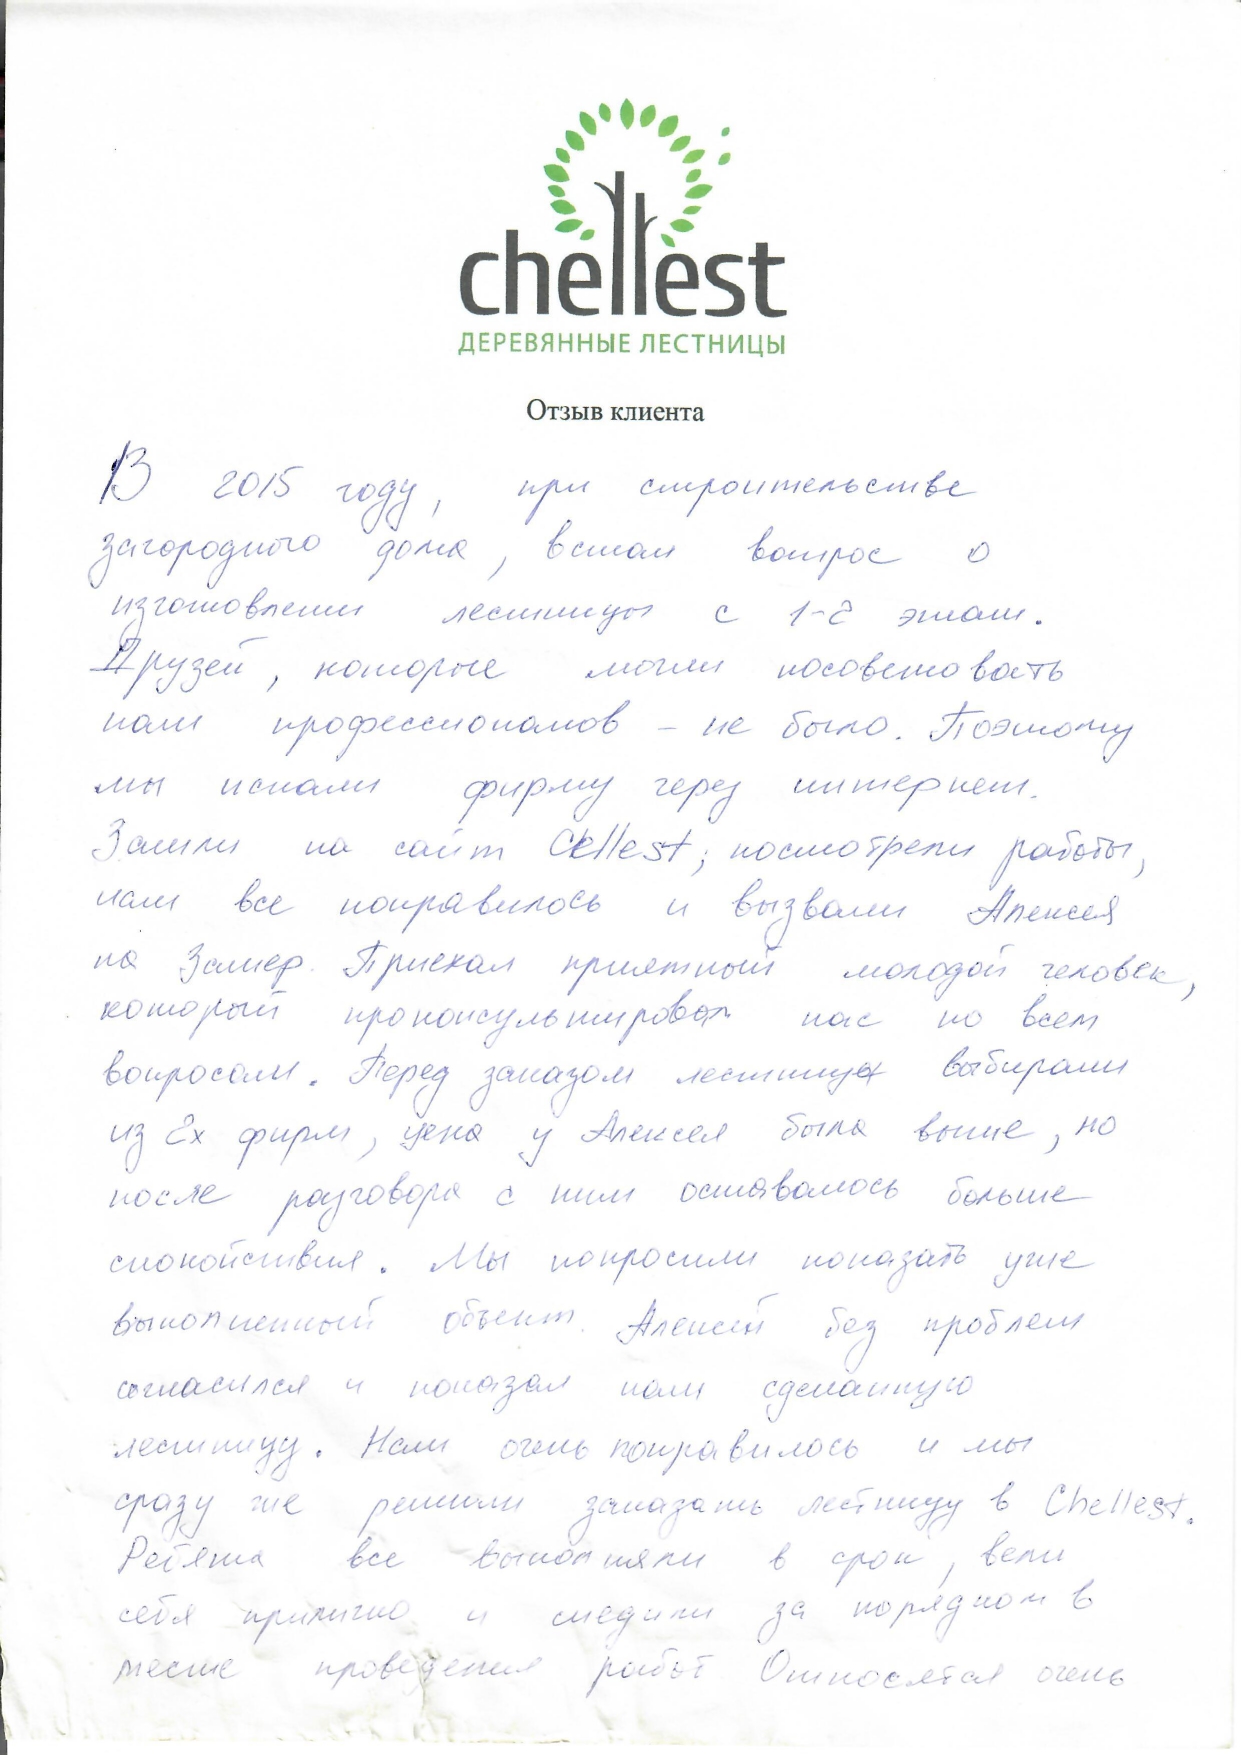 chellest
ДЕРЕВЯННЫЕ ЛЕСТНИЦЫ
Отзыв клиента
В 2015 году, при строительстве
загородного дома, встал вопрос о
изготовлении лестницы с 1-2 этаж.
Друзей, которые могли посоветовать
нам профессионалов - не было. Поэтому
мы искали фирму через интернет.
Зашли на сайт Chellest, посмотрели работы,
нам все понравилось и вызвали Алексея
на Замер. Приехал приятный молодой человек,
который проконсультировал нас по всем
вопросам. Перед заказом лестницы выбирали
из 2х фирм, цена у Алексея была выше, но
после разговора с ним оставалось больше
спокойствия. Мы попросили показать уже
выполненный объект. Алексей без проблем
согласился и показал нам сделанную
лестницу. Нам очень понравилось и мы
сразу же решили заказать лестницу в Chellest.
Ребята все выполняли в срок, вели
себя прилично и следили за порядком в
месте проведения работ. Относятся очень